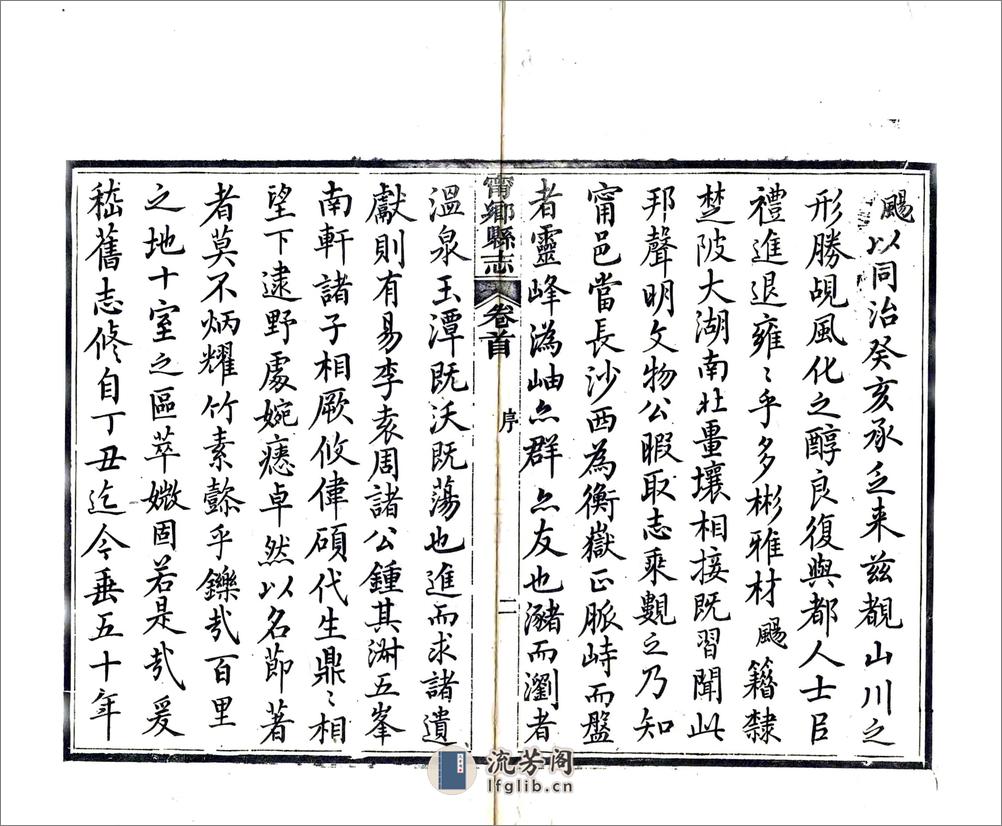 颺以同治癸亥承乏来兹覩山川之
形勝覘風化之醇良復與都人士臣
禮進退雍〻乎多彬雅材颺籍隸
楚陂大湖南北畺壤相接既習聞此
邦聲明文物公暇取志乘觀之乃知
甯邑當長沙西為衡嶽正脈峙而盤
者靈峰溈岫㸃群㸃友也瀦而瀏者
甯鄉縣志 卷首 序 二
溫泉玉潭既沃既蕩也進而求諸遺
獻則有易李袁周諸公鍾其淋五峯
南軒諸子相厥攸偉碩代生鼎〻相
望下逮野處婉㥁卓然以名節著
者莫不炳耀竹素懿乎鑠㢤百里
之地十室之區萃媺固若是㢤爰
嵇舊志修自丁丑迄今垂五十年
流芳阁
lfglib.cn